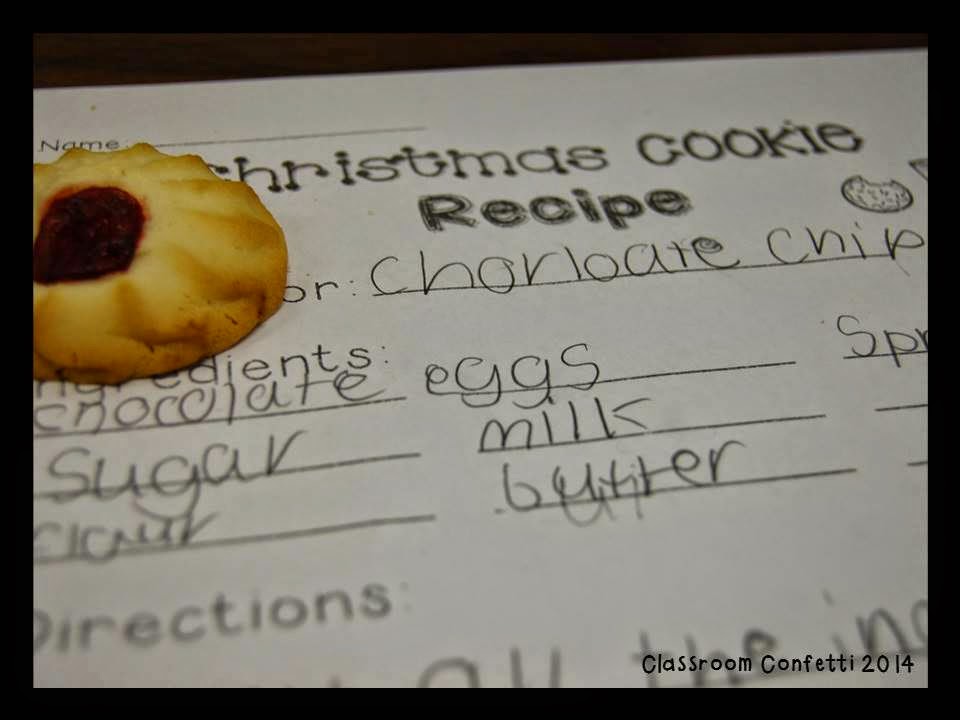 Name:
Christmas Cookie
Recipe
or: Chorloate Chip
Ingredients:
chocolate eggs Spr
Sugar milk
butter
Directions:
all the ing
Classroom Confetti 2014